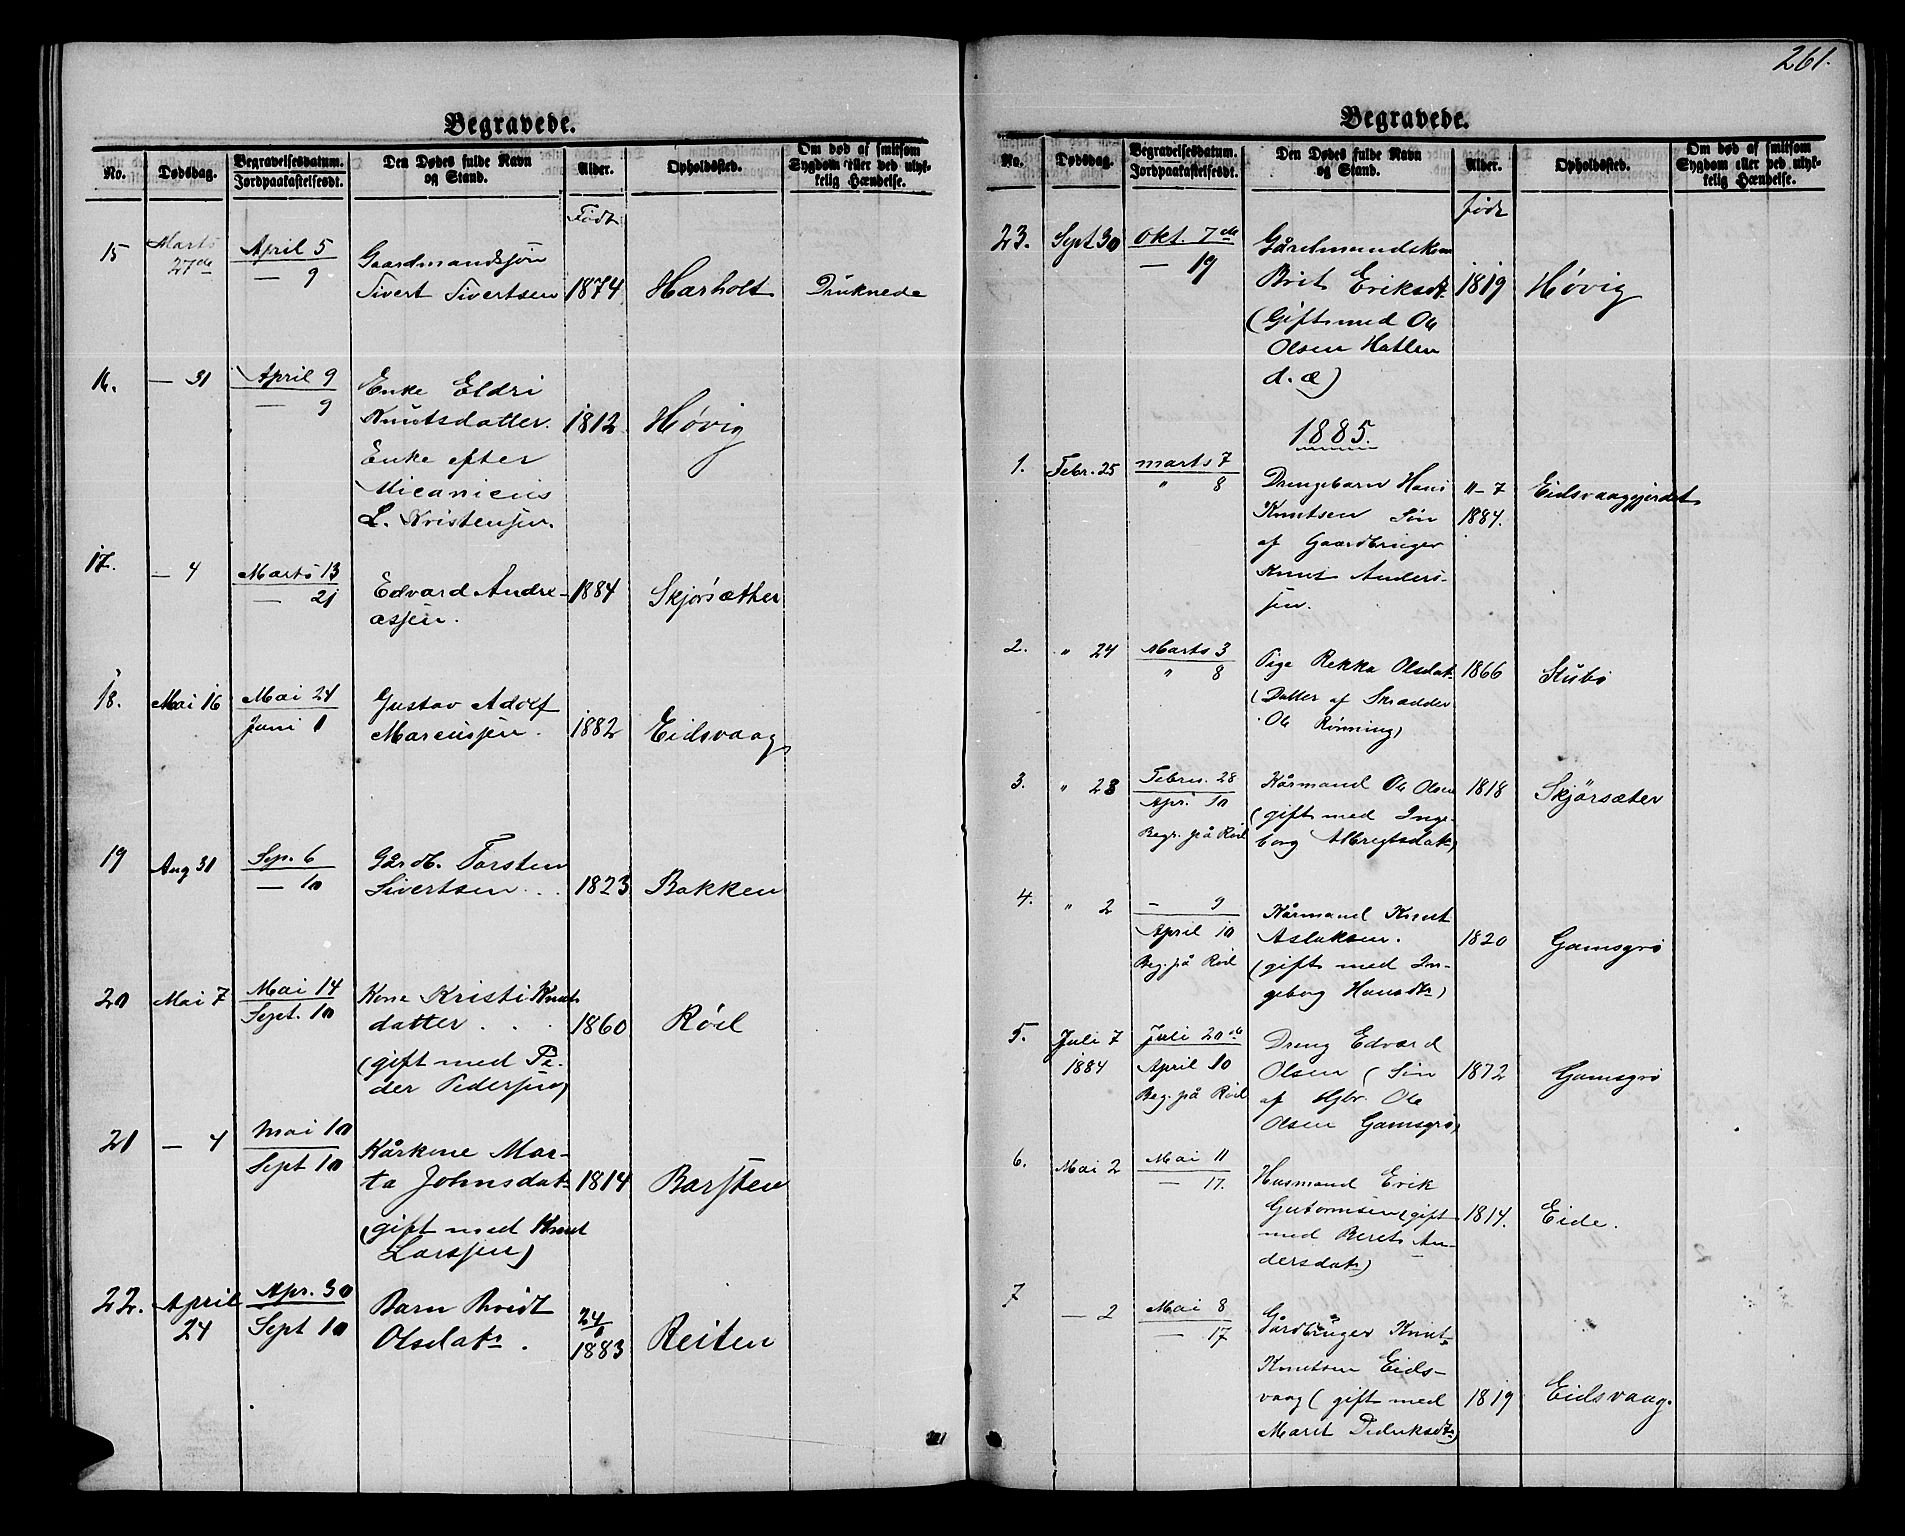 261.
Begravede.
No.
Dødsdag.
Begravelsesdatum.
Jordpaakastelsesdt.
Den Dødes fulde Navn
og Stand.
Alder.
Opholdssted.
Om død af smitsom
Sygdom eller ved ulyk-
kelig Hændelse.
Født
15
Marts
27de
April 5
— 9
Gaardmandssøn
Sivert Sivertsen
1874
Harholt
Druknede
16.
— 31
April 9
— 9
Enke Eldri
Knutsdatter.
Enke efter
Micanicus
L. Kristensen.
1812
Høvig
17.
— 4
Marts 13
— 21
Edvard Andre-
assen.
1884
Skjørsæther
18.
Mai 16
Mai 24
Juni 1
Gustav Adolf
Marcussen.
1882
Eidsvaag
19
Aug 31
Sep. 6
— 10
Gårdb. Torsten
Sivertsen . .
1823
Bakken
20
Mai 7
Mai 14
Sept. 10
Kone Kristi Knut
datter . . .
(gift med Pe-
der Pedersen)
1860
Röd
21
— 4
Mai 10
Sept 10
Kårkone Mar-
ta Johnsdatr
(gift med Knut
Larssen)
1814
Barsten
22.
April
24
Apr. 30
Sept 10
Barn Beidt
Olsdatr .
24
1883
Reiten
Begravede.
No.
Dødsdag.
Begravelsesdatum.
Jordpaakastelsesdt.
Den Dødes fulde Navn
og Stand.
Alder.
Opholdssted.
Om død af smitsom
Sygdom eller ved ulyk-
kelig Hændelse.
født
23.
Sept 30
Okt. 7de
— 19
Gårdmandskone
Brit Eriksdt
(Gift med Ole
Olsen Hatlen
d. æ)
1819
Høvig
1885.
1.
Febr. 25
Marts 7
" 8
Drengebarn Hans
Knutsen Søn
af Gaardbruger
Knut Anders-
sen.
11-7
1884.
Eidsvaaggjerdet
2.
" 24
Marts 3
" 8
Pige Rekka Olsdat
(Datter af Skrædder
Ole Rønning)
1866
Stubø
3.
" 23
Februa. 28
Apr. 10
Begr. på Röd
Kårmand Ole Olsen
(gift med Inge-
borg Albregtsdatr)
1818
Skjørsæter
4.
" 2
- 9
April 10
Beg. på Röd
Kårmand Knut
Aslaksen.
(gift med In-
geborg Hansdtr)
1820
Gamsgrø
5.
Juli 7
1884
Juli 20de
April 10
Beg. på Röd
Dreng Edvard
Olsen (Søn
af Gbr. Ole
Olsen Gamsgrø)
1872
Gamsgrø
6.
Mai 2
Mai 11
— 17.
Husmand Erik
Gutormsen (gift
med Beret An-
dersdatr)
1814.
Eide.
7
— 2
Mai 8
— 17
Gårdbruger Knut
Knutsen Eids-
vaag (gift med
Marit Didriksdtr)
1819
Eidsvaag.